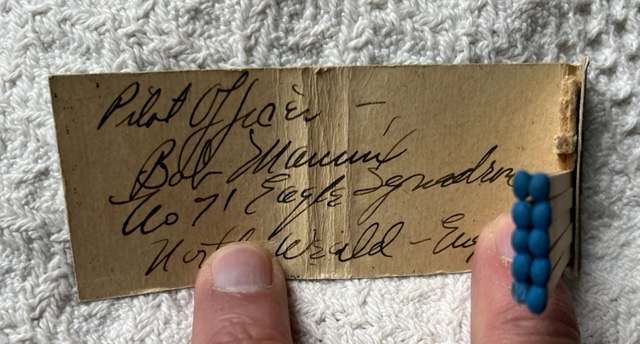 Pilot Officer –
Bob Mannix
No 71 Eagle Squadron
North Weald – Eng